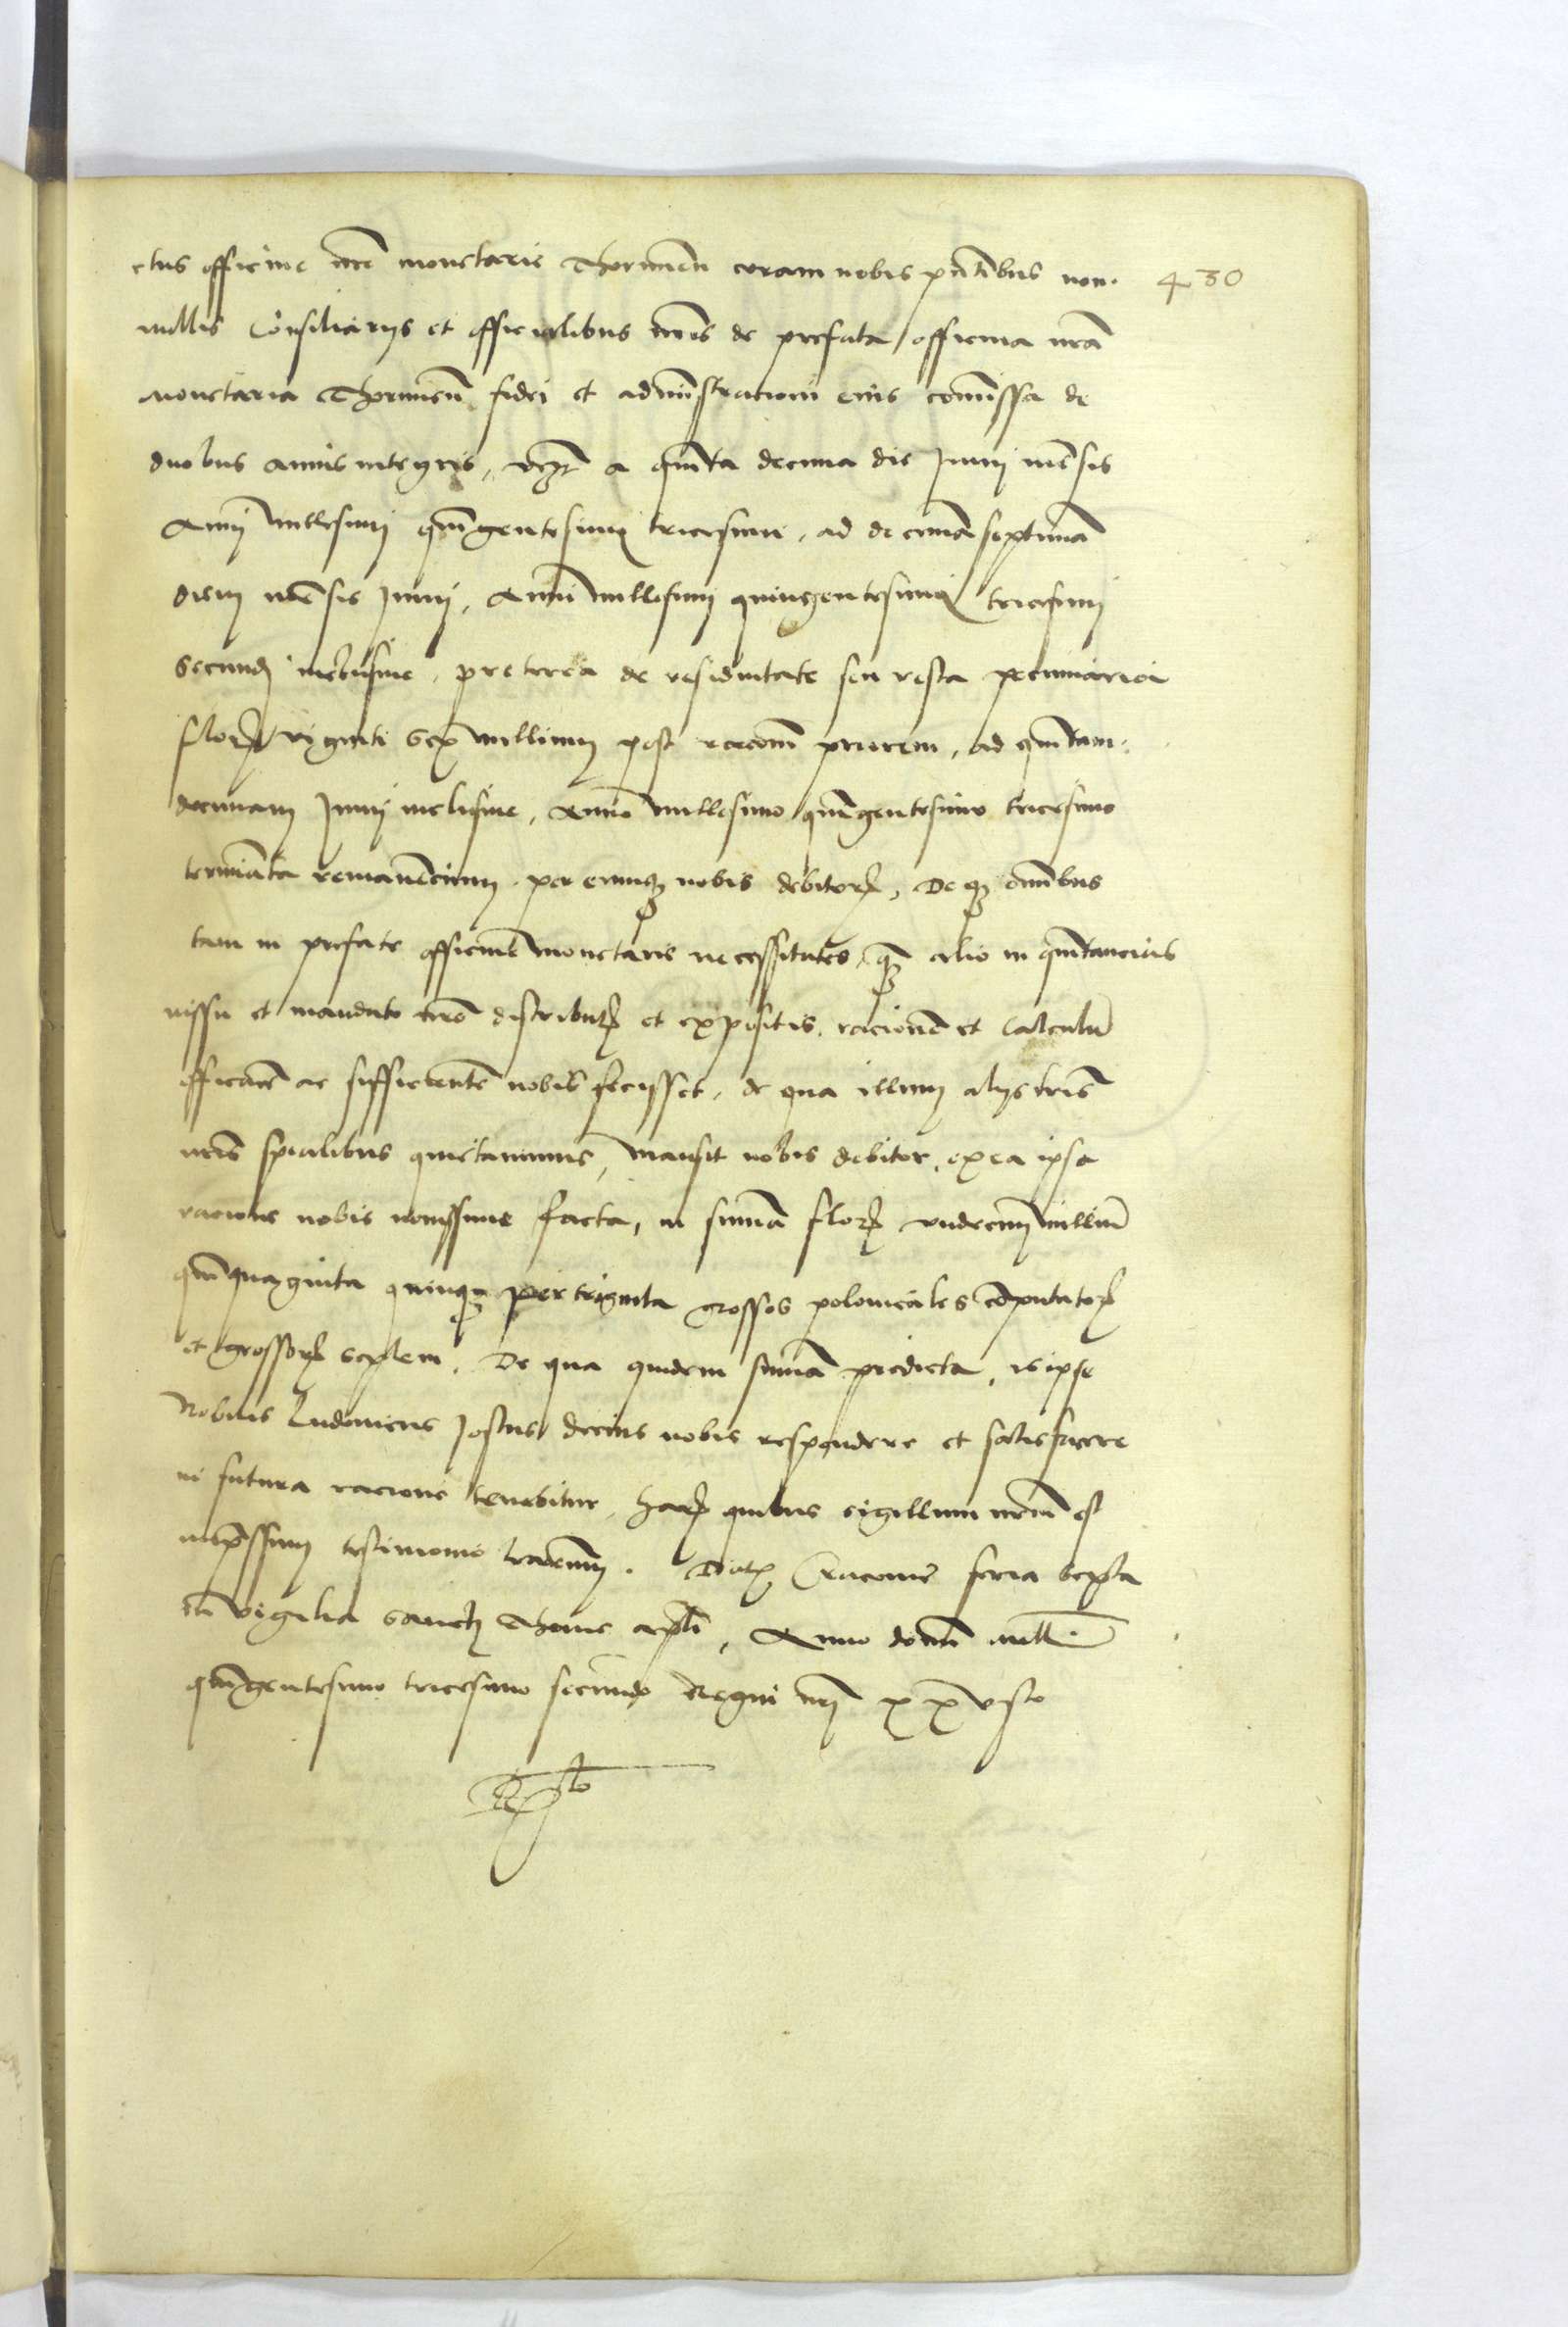 ctus officine nr̃e monetarie Thorunen̄ coram nobis pn̄tibus non- 430
nullis Consiliarijs et officialibus nr̃is de prefata officina nr̃a
monetaria Thorunen̄ fidei et administracioni eius com̄issa de
duobus annis integris, vidz a quinta decima die Junij mensis
Anni millesimi quingentesimi tricesimi, ad decimā septimā
diem mensis Junij, Anni millesimi quingentesimi tricesimi
secundi inclusiue, preterea de residuitate seu resta pecuniaria
florꝭ viginti sex millium post racionem priorem, ad quintam
decimam Junij inclusiue, Anno millesimo quingentesimo tricesimo
terminata remanencium per eumqꝫ nobis debitorꝭ, De qꝫ omnibus
tam in prefate officine monetarie necessitates, qꝫ alio in quitancias
iussu et mandato nr̃o distributꝭ et expositis, racionē et Calculū
efficacē ac sufficientē nobis fecisset, de qua illum alijs lrīs
nr̃is spēalibus quietauimus, mansit nobis debitor, ex ea ipsa
racione nobis nouissime facta, in summā florꝭ vndecim milliū
quinquaginta quinqꝫ per triginta grossos polonicales cōputatorꝭ
et grossorꝭ septem. De qua quidem summa predicta, is ipse
Nobilis Ludouicus Jostus decius nobis respondere et satisfacere
in futura racione tenebitur, harꝭ quibus sigillum nr̃m est
impr̄ssum testimonio lr̃arum. Datꝭ Cracouie feria sexta
in vigilia sancti Thome apl̃i, Anno domī mill̄
quingentesimo tricesimo secundo Regni nr̃i xxvsto